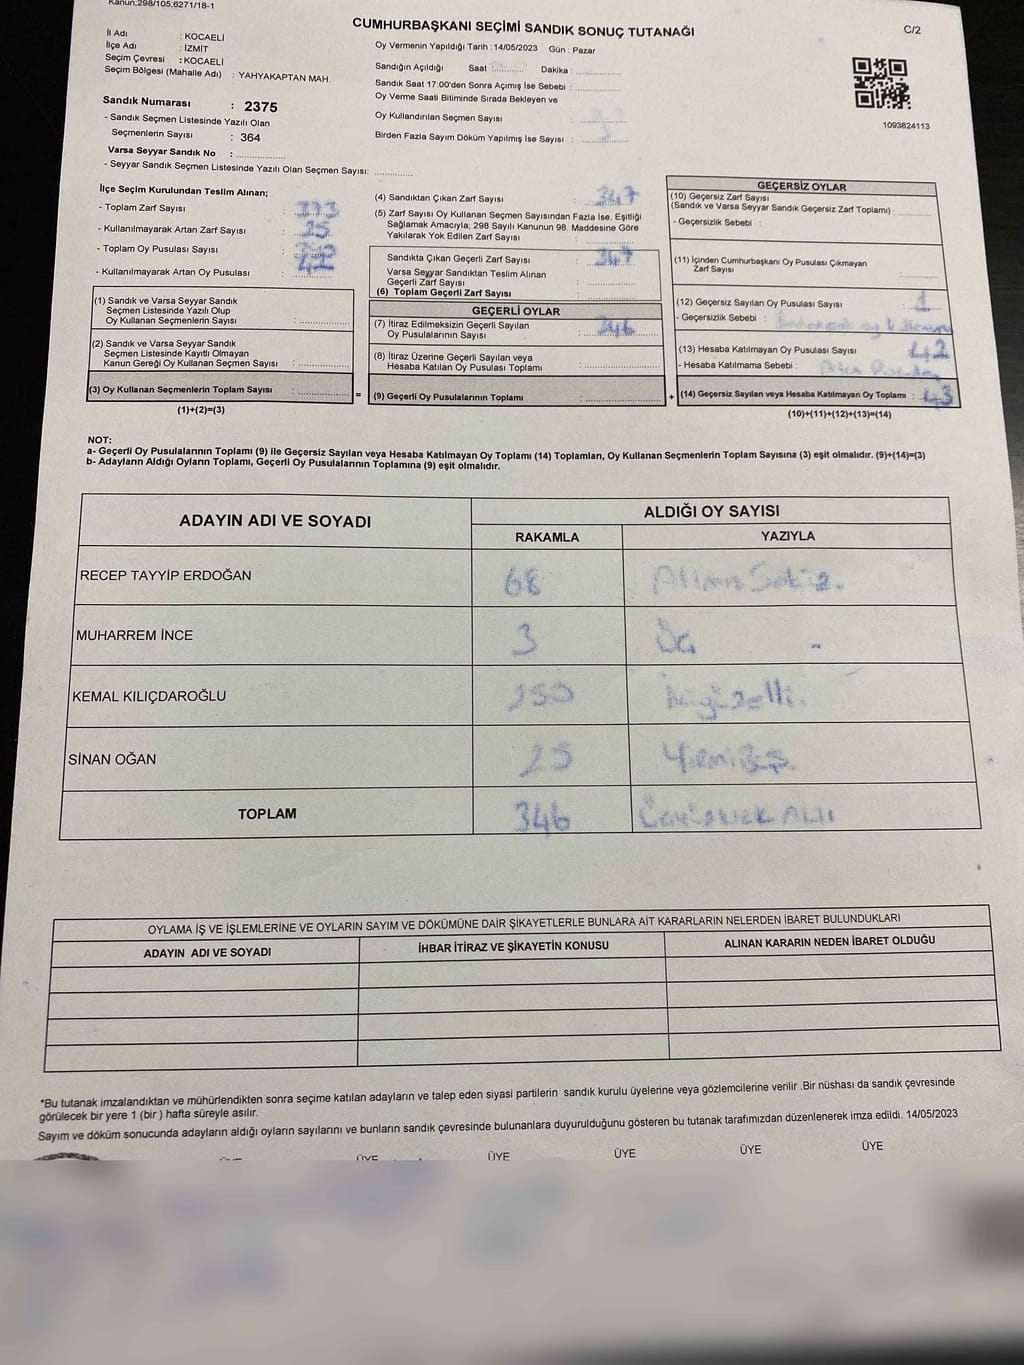 Kanun;298/105,6271/18-1
CUMHURBAŞKANI SEÇİMİ SANDIK SONUÇ TUTANAĞI
C/2
İl Adı : KOCAELİ
İlçe Adı : İZMİT
Seçim Çevresi : KOCAELİ
Seçim Bölgesi (Mahalle Adı) : YAHYAKAPTAN MAH.
Sandık Numarası : 2375
- Sandık Seçmen Listesinde Yazılı Olan
Seçmenlerin Sayısı : 364
Varsa Seyyar Sandık No : ................
- Seyyar Sandık Seçmen Listesinde Yazılı Olan Seçmen Sayısı: ............
Oy Vermenin Yapıldığı Tarih : 14/05/2023 Gün : Pazar
Sandığın Açıldığı Saat :........... Dakika : ..............
Sandık Saat 17:00'den Sonra Açımış İse Sebebi : ..............
Oy Verme Saati Bitiminde Sırada Bekleyen ve
Oy Kullandırılan Seçmen Sayısı :
Birden Fazla Sayım Döküm Yapılmış İse Sayısı :
1093824113
İlçe Seçim Kurulundan Teslim Alınan;
- Toplam Zarf Sayısı :
- Kullanılmayarak Artan Zarf Sayısı :
- Toplam Oy Pusulası Sayısı :
- Kullanılmayarak Artan Oy Pusulası : 42
(1) Sandık ve Varsa Seyyar Sandık
Seçmen Listesinde Yazılı Olup
Oy Kullanan Seçmenlerin Sayısı : ..............
(2) Sandık ve Varsa Seyyar Sandık
Seçmen Listesinde Kayıtlı Olmayan
Kanun Gereği Oy Kullanan Seçmen Sayısı : ..............
(3) Oy Kullanan Seçmenlerin Toplam Sayısı : .............. =
(1)+(2)=(3)
(4) Sandıktan Çıkan Zarf Sayısı : 347
(5) Zarf Sayısı Oy Kullanan Seçmen Sayısından Fazla İse, Eşitliği
Sağlamak Amacıyla; 298 Sayılı Kanunun 98. Maddesine Göre
Yakılarak Yok Edilen Zarf Sayısı : ..............
Sandıkta Çıkan Geçerli Zarf Sayısı : 347
Varsa Seyyar Sandıktan Teslim Alınan
Geçerli Zarf Sayısı : ..............
(6) Toplam Geçerli Zarf Sayısı : ..............
GEÇERLİ OYLAR
(7) İtiraz Edilmeksizin Geçerli Sayılan
Oy Pusulalarının Sayısı : 346
(8) İtiraz Üzerine Geçerli Sayılan veya
Hesaba Katılan Oy Pusulası Toplamı : ..............
(9) Geçerli Oy Pusulalarının Toplamı : .............. +
GEÇERSİZ OYLAR
(10) Geçersiz Zarf Sayısı
(Sandık ve Varsa Seyyar Sandık Geçersiz Zarf Toplamı) : ..........
- Geçersizlik Sebebi :
(11) İçinden Cumhurbaşkanı Oy Pusulası Çıkmayan
Zarf Sayısı : ..........
(12) Geçersiz Sayılan Oy Pusulası Sayısı : 1
- Geçersizlik Sebebi :
(13) Hesaba Katılmayan Oy Pusulası Sayısı : 42
- Hesaba Katılmama Sebebi :
(14) Geçersiz Sayılan veya Hesaba Katılmayan Oy Toplamı : 43
(10)+(11)+(12)+(13)=(14)
NOT:
a- Geçerli Oy Pusulalarının Toplamı (9) ile Geçersiz Sayılan veya Hesaba Katılmayan Oy Toplamı (14) Toplamları, Oy Kullanan Seçmenlerin Toplam Sayısına (3) eşit olmalıdır. (9)+(14)=(3)
b- Adayların Aldığı Oyların Toplamı, Geçerli Oy Pusulalarının Toplamına (9) eşit olmalıdır.
ADAYIN ADI VE SOYADI ALDIĞI OY SAYISI
RAKAMLA YAZIYLA
RECEP TAYYİP ERDOĞAN 68
MUHARREM İNCE 3
KEMAL KILIÇDAROĞLU 250
SİNAN OĞAN 25
TOPLAM 346
OYLAMA İŞ VE İŞLEMLERİNE VE OYLARIN SAYIM VE DÖKÜMÜNE DAİR ŞİKAYETLERLE BUNLARA AİT KARARLARIN NELERDEN İBARET BULUNDUKLARI
ADAYIN ADI VE SOYADI İHBAR İTİRAZ VE ŞİKAYETİN KONUSU ALINAN KARARIN NEDEN İBARET OLDUĞU
*Bu tutanak imzalandıktan ve mühürlendikten sonra seçime katılan adayların ve talep eden siyasi partilerin sandık kurulu üyelerine veya gözlemcilerine verilir .Bir nüshası da sandık çevresinde
görülecek bir yere 1 (bir ) hafta süreyle asılır.
Sayım ve döküm sonucunda adayların aldığı oyların sayılarını ve bunların sandık çevresinde bulunanlara duyurulduğunu gösteren bu tutanak tarafımızdan düzenlenerek imza edildi. 14/05/2023
ÜYE ÜYE ÜYE ÜYE ÜYE